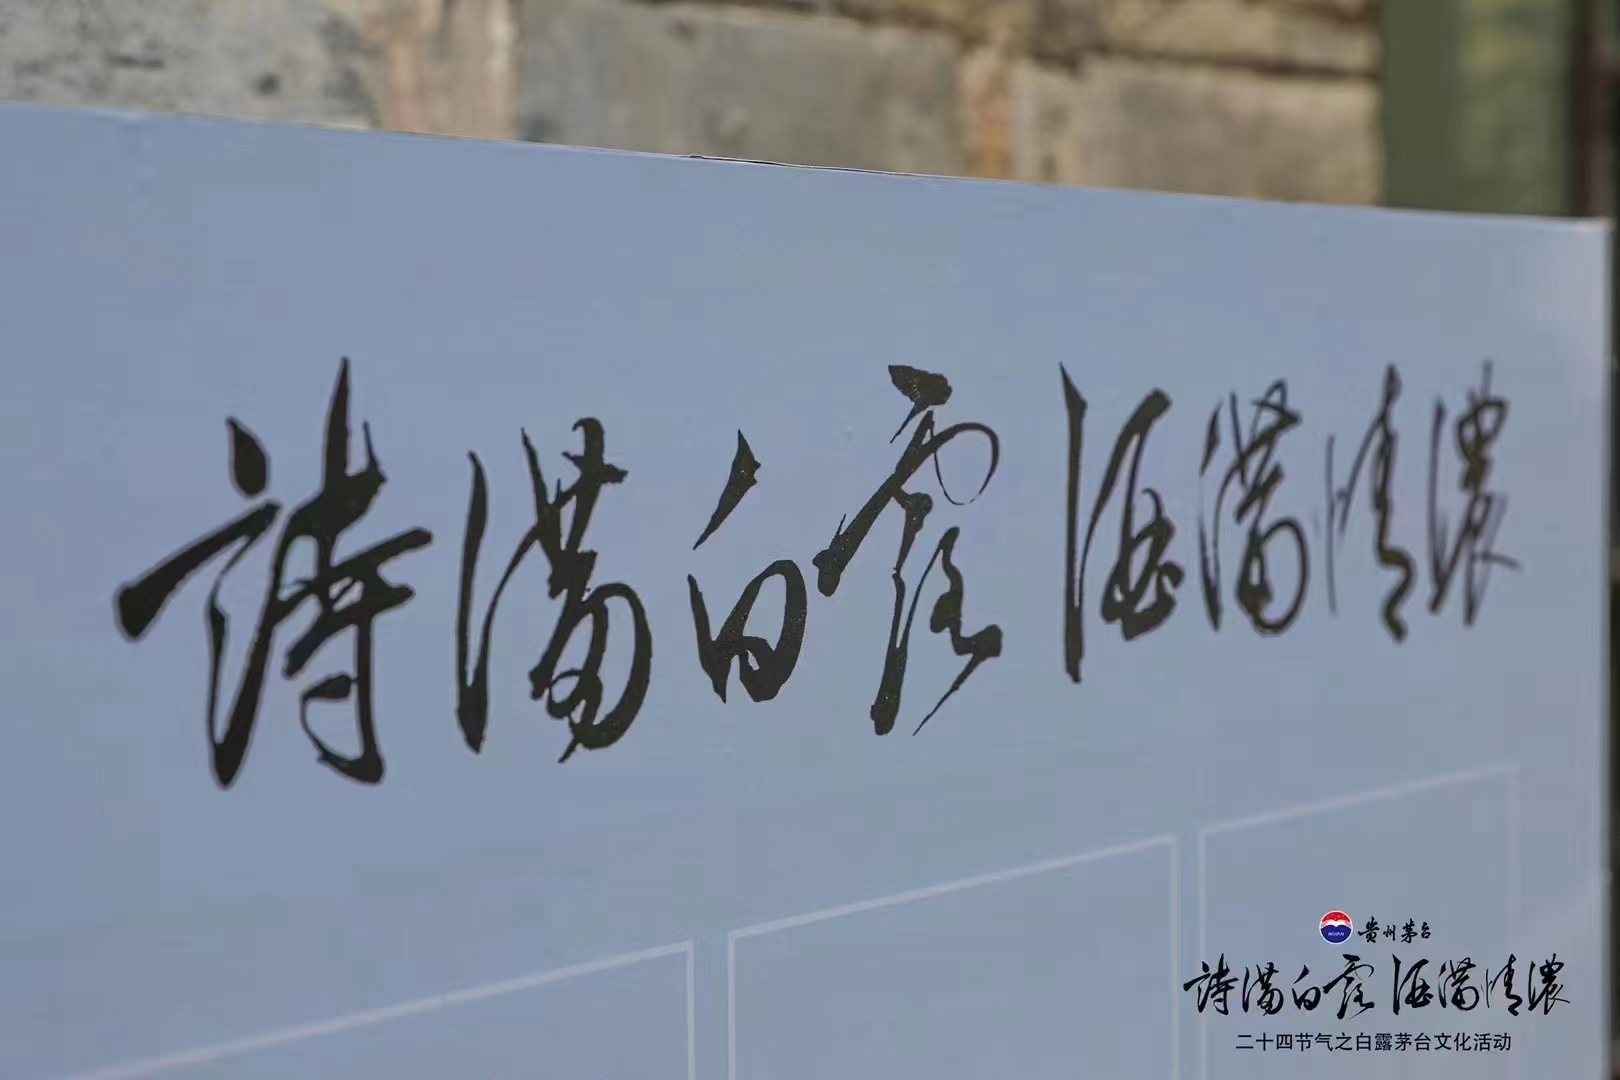 詩滿白露 酒滿情濃
MOUTAI
贵州茅台
詩滿白露 酒滿情濃
二十四节气之白露茅台文化活动